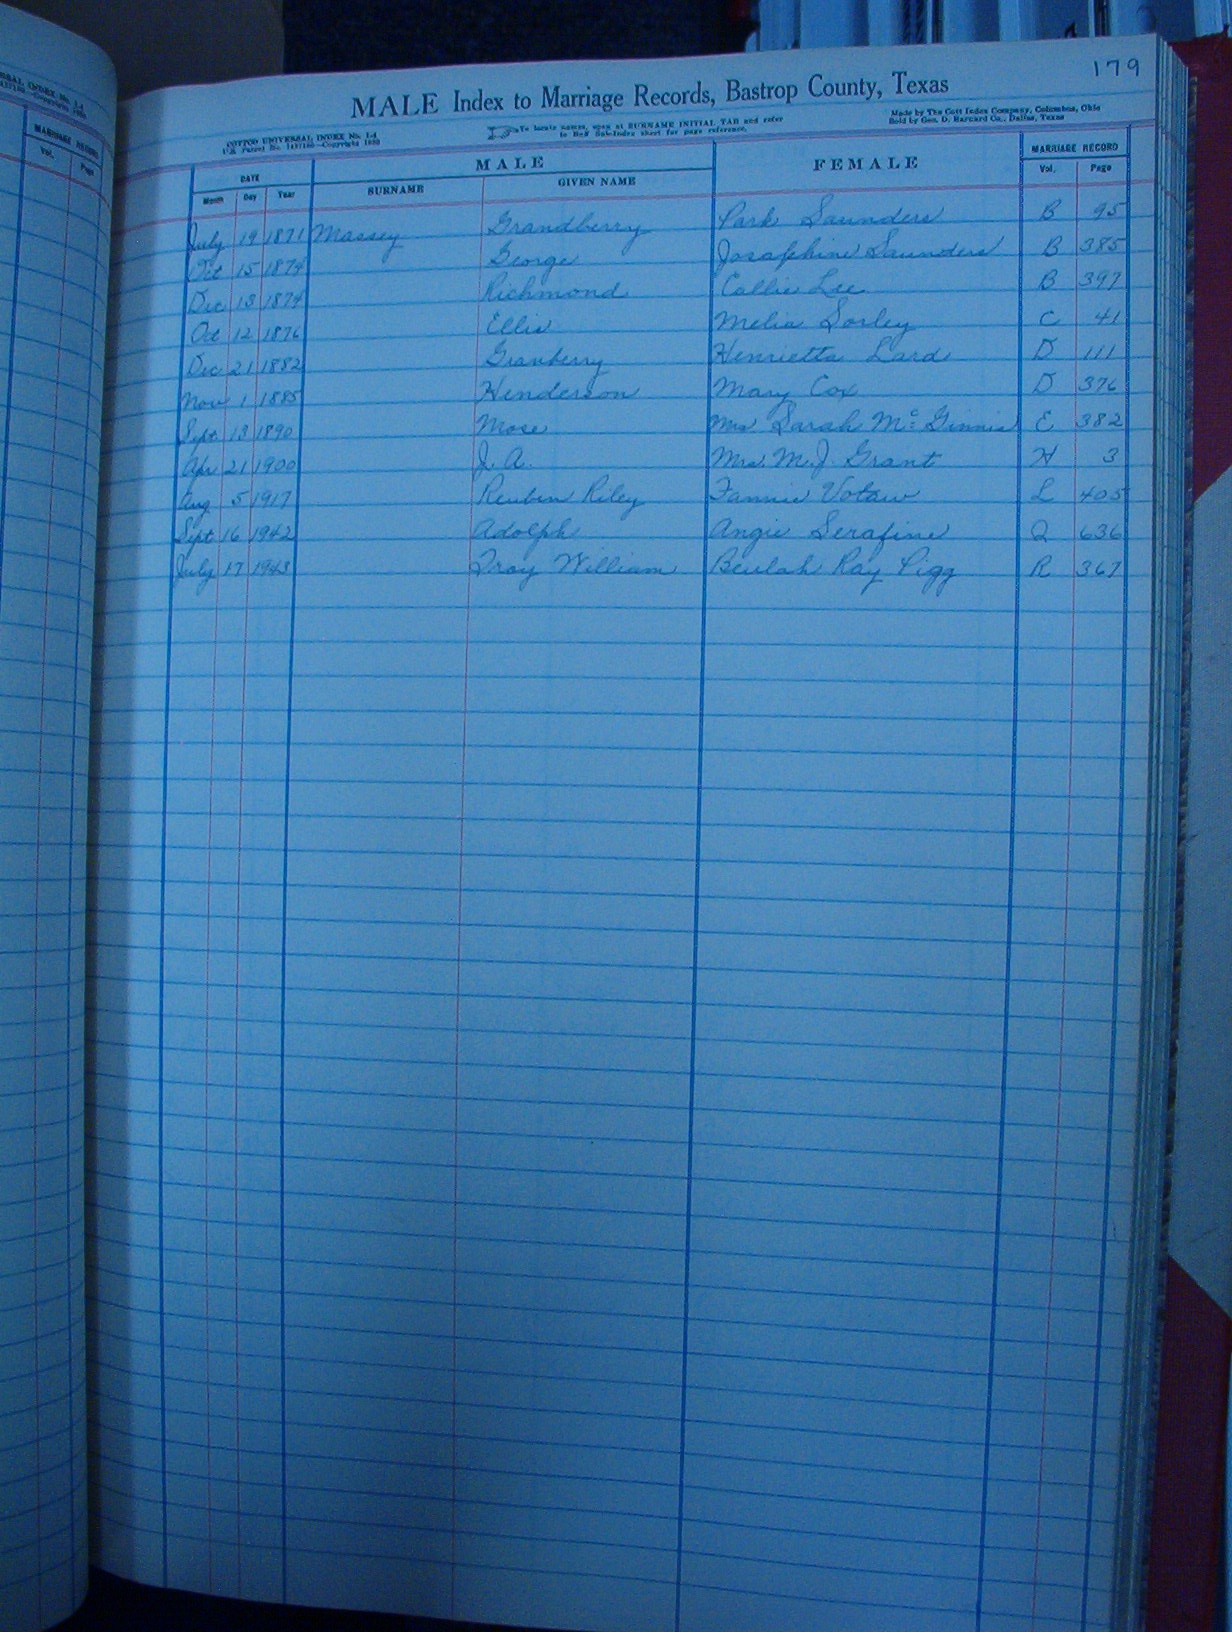 179
MALE Index to Marriage Records, Bastrop County, Texas
COTTCO UNIVERSAL INDEX No. I-4
To locate names, open at SURNAME INITIAL TAB and refer
to Buff Sub-Index sheet for page reference.
Made by The Cott Index Company, Columbus, Ohio
Sold by Geo. D. Barnard Co., Dallas, Texas
DATE MALE FEMALE MARRIAGE RECORD
Month Day Year SURNAME GIVEN NAME Vol. Page
July 19 1871 Massey Grandberry Park Saunders B 95
Oct 15 1874 George Josaphine Saunders B 385
Dec 13 1874 Richmond Callie Lee B 397
Oct 12 1876 Ellis Melia Sorley C 41
Dec 21 1882 Granberry Henrietta Lard D 111
Nov 1 1885 Henderson Mary Cox D 376
Sept 13 1890 Mose Mrs Sarah Mc Ginnis E 382
Apr 21 1900 J. A. Mrs. M. J. Grant H 3
Aug 5 1917 Reuben Riley Fannie Votaw L 405
Sept 16 1942 Adolph Angie Serafine Q 636
July 17 1948 Troy William Beulah Ray Pigg R 367
MARRIAGE RECORD
Vol. Page